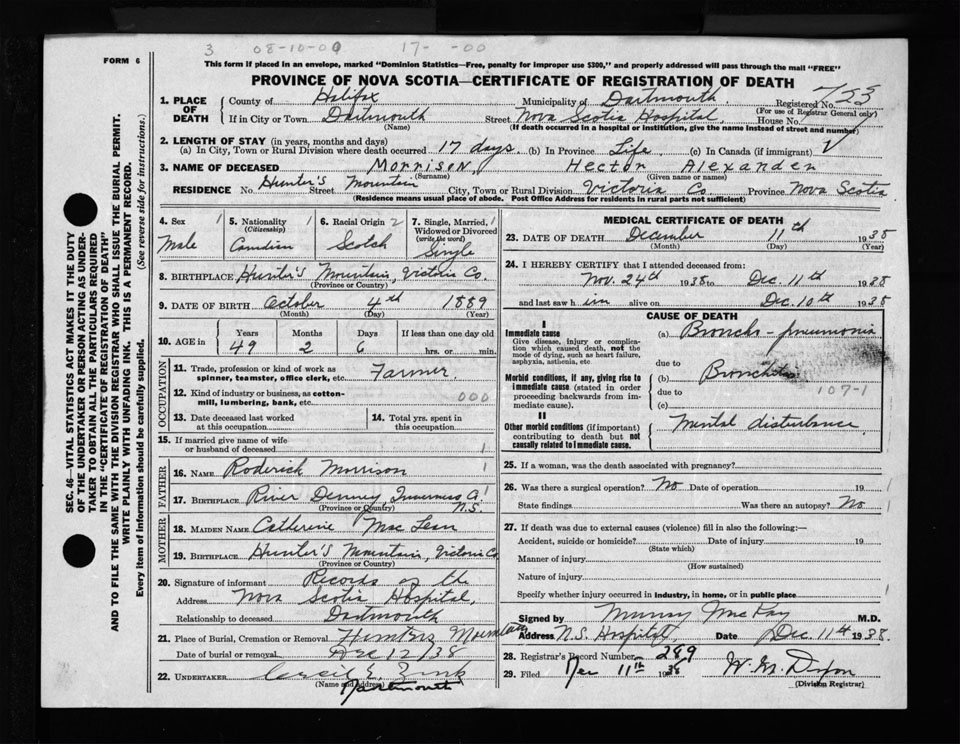 3 08-10-00 17- -00
FORM 6
This form if placed in an envelope, marked "Dominion Statistics—Free, penalty for improper use $300," and properly addressed will pass through the mail "FREE"
PROVINCE OF NOVA SCOTIA—CERTIFICATE OF REGISTRATION OF DEATH
SEC. 46—VITAL STATISTICS ACT MAKES IT THE DUTY
OF THE UNDERTAKER OR PERSON ACTING AS UNDER-
TAKER TO OBTAIN ALL THE PARTICULARS REQUIRED
IN THE "CERTIFICATE OF REGISTRATION OF DEATH"
AND TO FILE THE SAME WITH THE DIVISION REGISTRAR WHO SHALL ISSUE THE BURIAL PERMIT.
WRITE PLAINLY WITH UNFADING INK. THIS IS A PERMANENT RECORD.
Every item of information should be carefully supplied. (See reverse side for instructions.)
1. PLACE OF DEATH
County of Halifax Municipality of Dartmouth Registered No. 723
(For use of Registrar General only)
If in City or Town Dartmouth Street Nova Scotia Hospital House No.
(Name) (If death occurred in a hospital or institution, give the name instead of street and number)
2. LENGTH OF STAY (in years, months and days)
(a) In City, Town or Rural Division where death occurred 17 days. (b) In Province Life (c) In Canada (if immigrant)
3. NAME OF DECEASED Morrison, Hector Alexander
(Surname) (Given name or names)
RESIDENCE No Hunter's Street Mountain City, Town or Rural Division Victoria Co Province Nova Scotia
(Residence means usual place of abode. Post Office Address for residents in rural parts not sufficient)
4. Sex 1 5. Nationality 1 6. Racial Origin 2 7. Single, Married, 1
(Citizenship) Widowed or Divorced
(write the word)
Male Canadian Scotch Single
8. BIRTHPLACE Hunter's Mountain, Victoria Co.
(Province or Country)
9. DATE OF BIRTH October 4th 1889
(Month) (Day) (Year)
10. AGE in Years Months Days If less than one day old
49 2 6 hrs. or min.
OCCUPATION
11. Trade, profession or kind of work as
spinner, teamster, office clerk, etc. Farmer.
12. Kind of industry or business, as cotton-
mill, lumbering, bank, etc. 000
13. Date deceased last worked
at this occupation
14. Total yrs. spent in
this occupation
15. If married give name of wife
or husband of deceased 1
FATHER
16. NAME Roderick Morrison 1
17. BIRTHPLACE River Denney Inverness Co. 1
(Province or Country) N.S.
MOTHER
18. MAIDEN NAME Catherine Mac Lean
19. BIRTHPLACE Hunter's Mountain, Victoria Co.
(Province or Country)
20. Signature of informant Records of the
Address Nova Scotia Hospital,
Relationship to deceased Dartmouth
21. Place of Burial, Cremation or Removal Hunters Mountain
Date of burial or removal Dec 12/38
22. UNDERTAKER
(Name and Address) Dartmouth
MEDICAL CERTIFICATE OF DEATH
23. DATE OF DEATH December 11th 1938
(Month) (Day) (Year)
24. I HEREBY CERTIFY that I attended deceased from:
Nov. 24th 1938 to Dec. 11th 1938
and last saw h im alive on Dec. 10th 1938
CAUSE OF DEATH
I
Immediate cause (a) Broncho-pneumonia
Give disease, injury or complica-
tion which caused death, not the
mode of dying, such as heart failure,
asphyxia, asthenia, etc.
due to
Morbid conditions, if any, giving rise to
immediate cause (stated in order
proceeding backwards from im-
mediate cause).
(b)
due to 107-1
(c)
II
Other morbid conditions (if important)
contributing to death but not
causally related to immediate cause.
Mental disturbance
25. If a woman, was the death associated with pregnancy?
26. Was there a surgical operation? No Date of operation 19 1
State findings Was there an autopsy? No 1
27. If death was due to external causes (violence) fill in also the following:—
Accident, suicide or homicide? Date of injury 19
(State which)
Manner of injury
(How sustained)
Nature of injury
Specify whether injury occurred in industry, in home, or in public place 1
Signed by Murray MacKay M.D.
Address N.S. Hospital. Date Dec. 11th 1938.
28. Registrar's Record Number 289
29. Filed Dec 11th 1938
(Division Registrar)